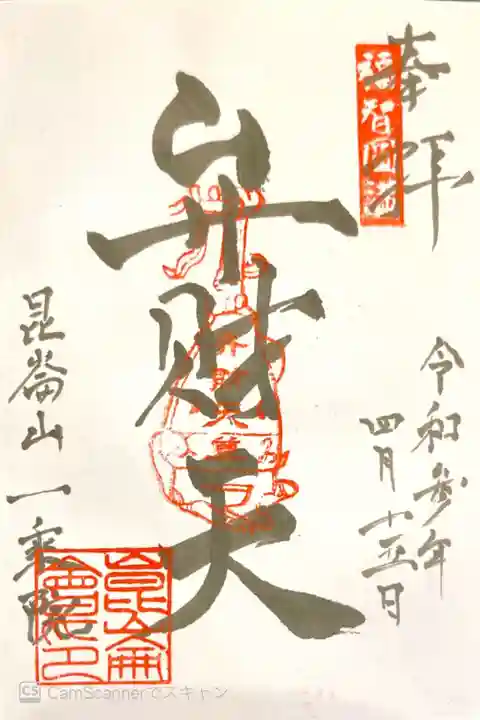 奉拝
福智円満
令和参年
四月十五日
弁財天
昆崙山一乗院
CS CamScannerでスキャン